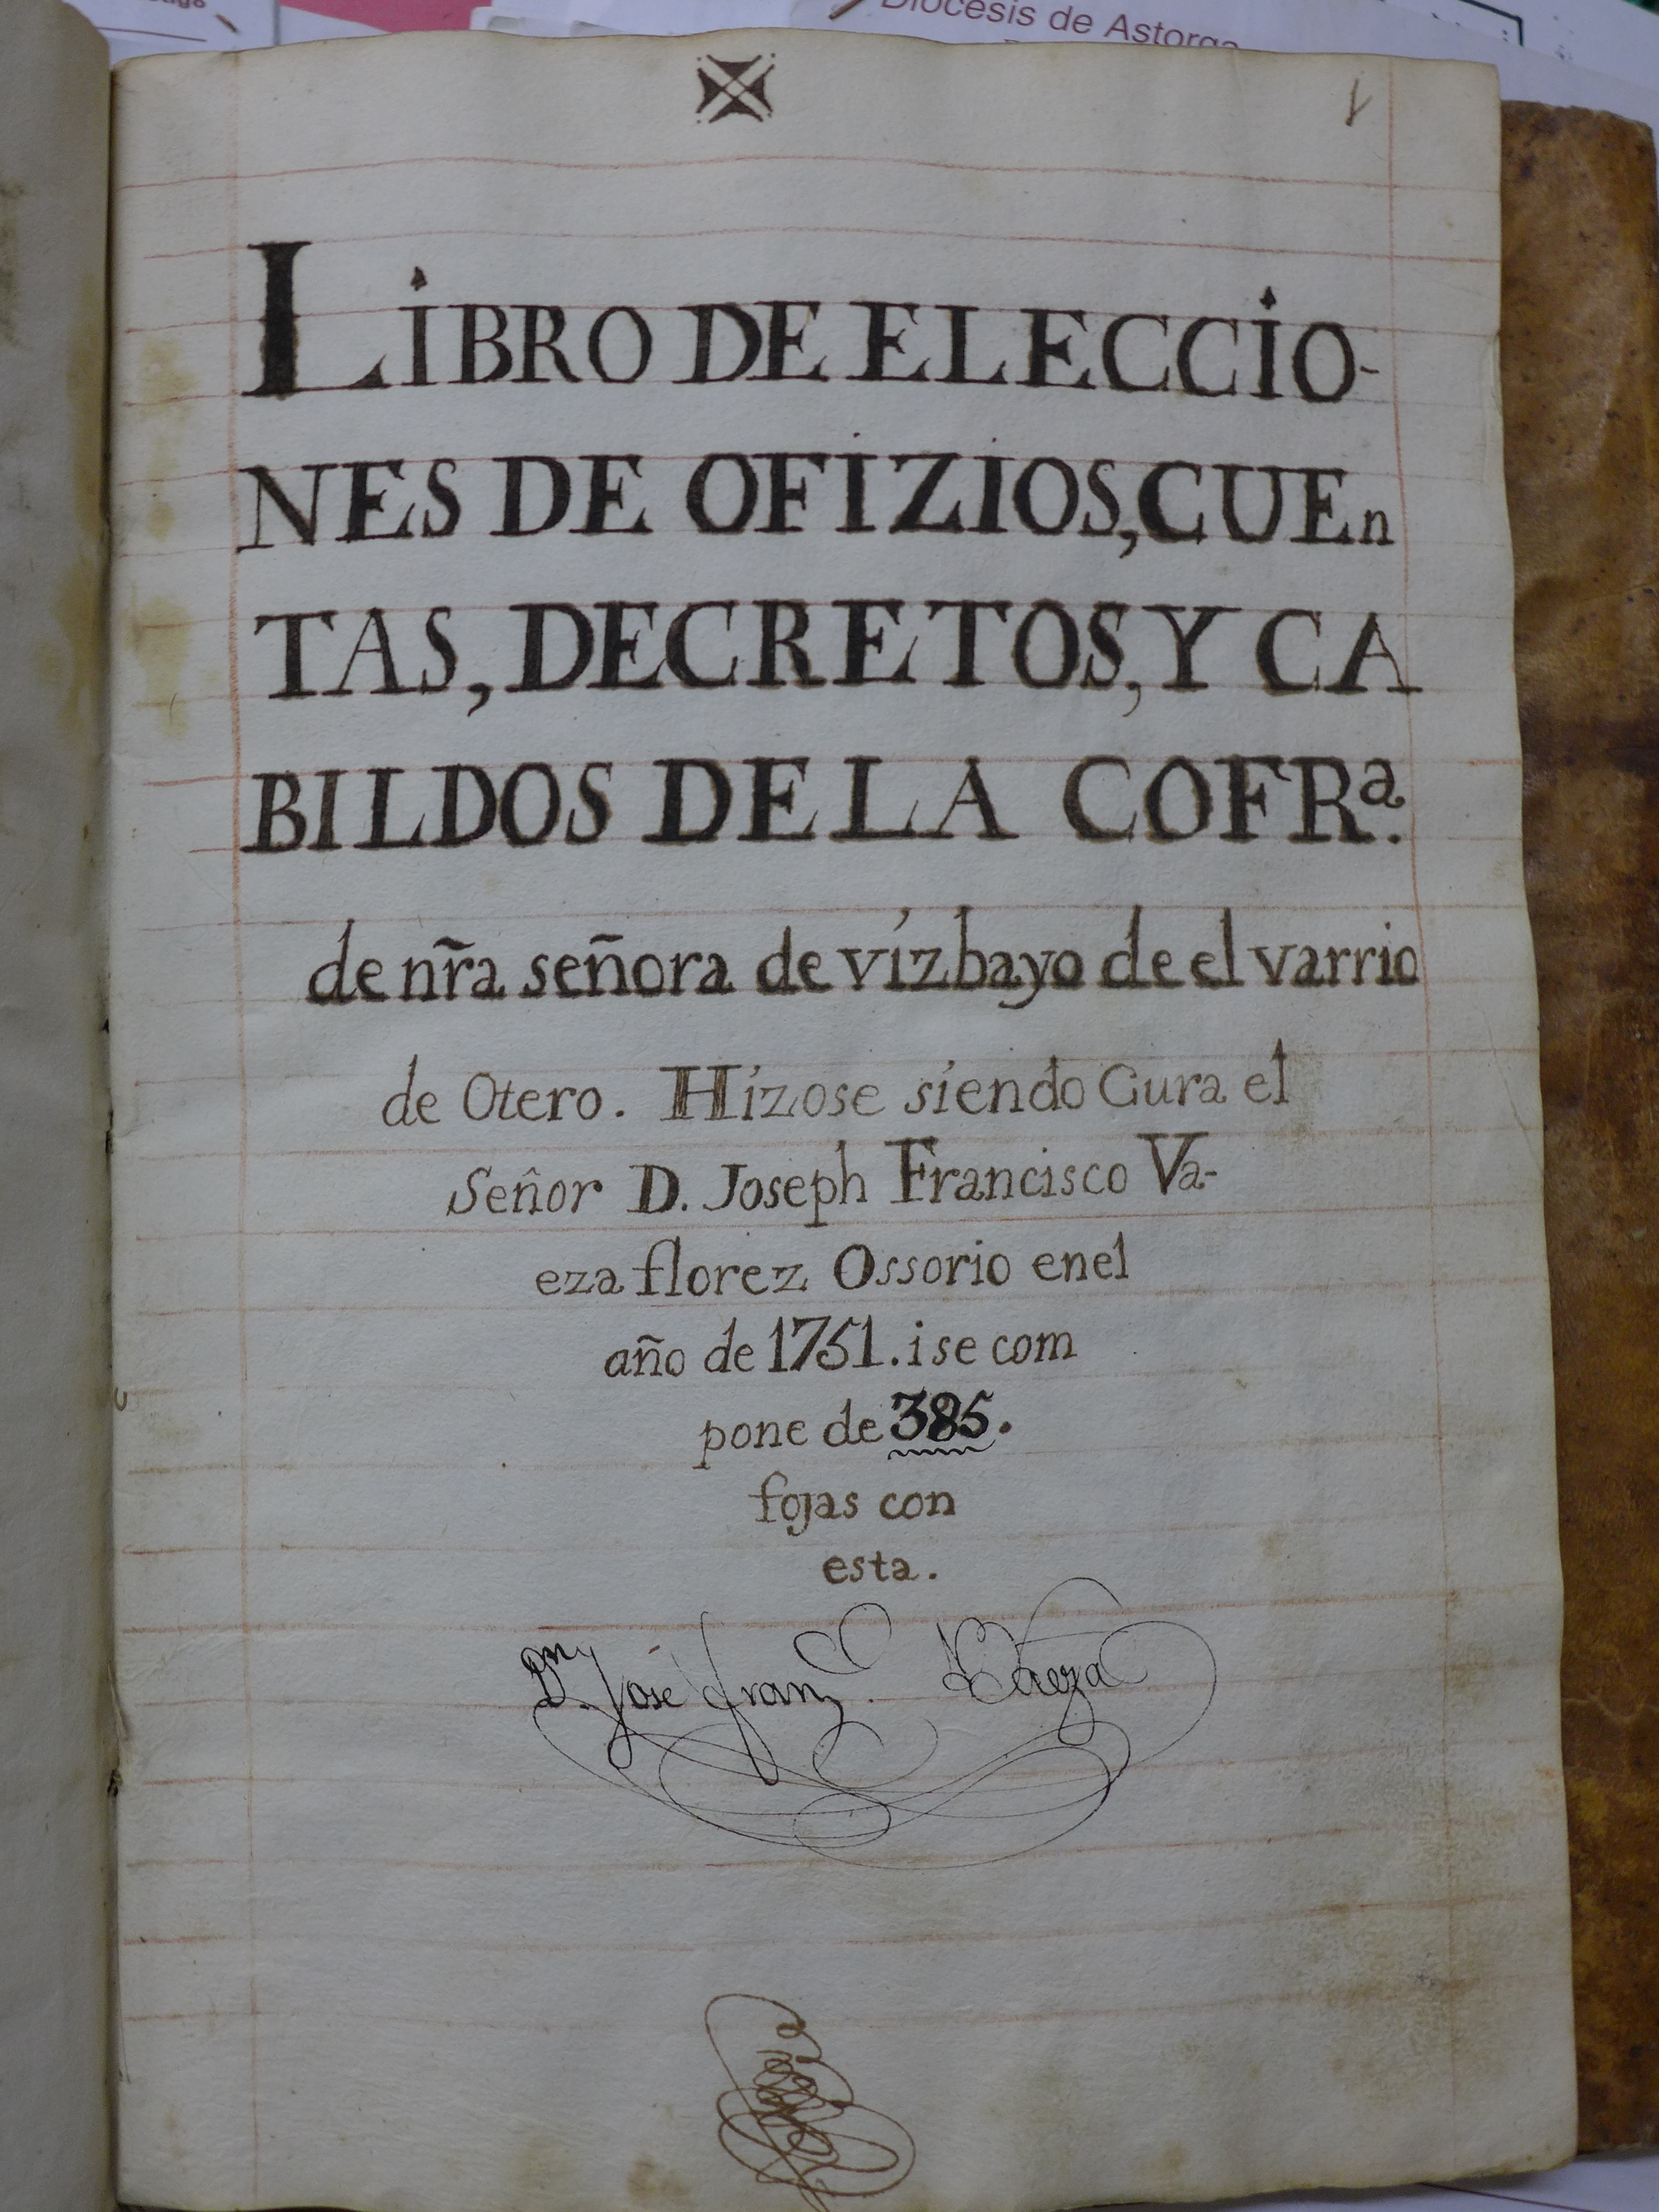 Diocesis de Astorga
1
LiBRO DE ELECCiO-
NES DE OFIZIOS, CUEn
TAS, DECRETOS, Y CA
BILDOS DE LA COFRa.
de nr̃a señora de vizbayo de el varrio
de Otero. Hizose siendo Cura el
Señor D. Joseph Francisco Va-
eza florez Ossorio en el
año de 1751. i se com
pone de 385.
fojas con
esta.
Dn. José Franco. Vaeza